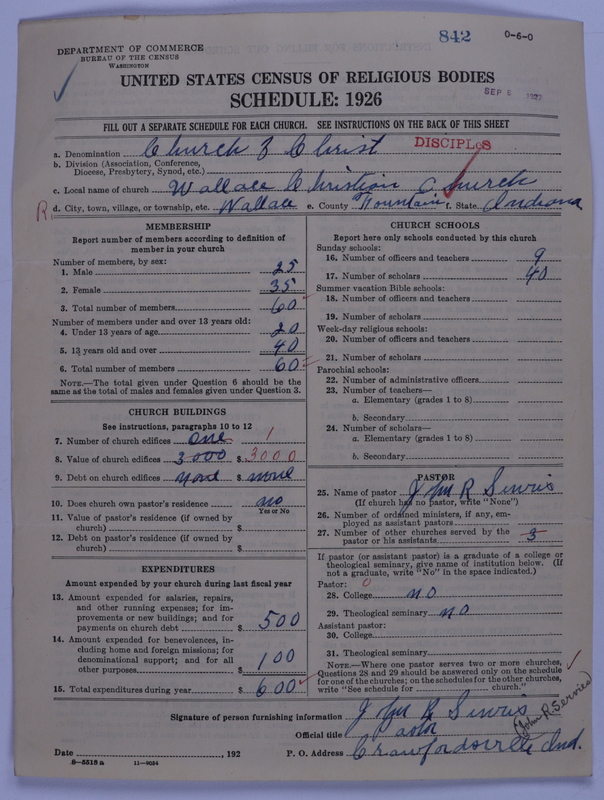 842
0-6-0
DEPARTMENT OF COMMERCE
BUREAU OF THE CENSUS
WASHINGTON
UNITED STATES CENSUS OF RELIGIOUS BODIES
SCHEDULE: 1926
SEP 6 1927
FILL OUT A SEPARATE SCHEDULE FOR EACH CHURCH. SEE INSTRUCTIONS ON THE BACK OF THIS SHEET
a. Denomination Church of Christ DISCIPLOS
b. Division (Association, Conference,
Diocese, Presbytery, Synod, etc.)
c. Local name of church Wallace Christian Church
R d. City, town, village, or township, etc. Wallace e. County Fountain f. State Indiana
MEMBERSHIP
Report number of members according to definition of
member in your church
Number of members, by sex:
1. Male 25
2. Female 35
3. Total number of members 60
Number of members under and over 13 years old:
4. Under 13 years of age 20
5. 13 years old and over 40
6. Total number of members 60
NOTE.—The total given under Question 6 should be the
same as the total of males and females given under Question 3.
CHURCH BUILDINGS
See instructions, paragraphs 10 to 12
7. Number of church edifices one 1
8. Value of church edifices 3000 $ 3000
9. Debt on church edifices none $ none
10. Does church own pastor's residence no
Yes or No
11. Value of pastor's residence (if owned by
church) $
12. Debt on pastor's residence (if owned by
church) $
EXPENDITURES
Amount expended by your church during last fiscal year
13. Amount expended for salaries, repairs,
and other running expenses; for im-
provements or new buildings; and for
payments on church debt $ 500
14. Amount expended for benevolences, in-
cluding home and foreign missions; for
denominational support; and for all
other purposes $ 100
15. Total expenditures during year $ 600
CHURCH SCHOOLS
Report here only schools conducted by this church
Sunday schools:
16. Number of officers and teachers 9
17. Number of scholars 40
Summer vacation Bible schools:
18. Number of officers and teachers
19. Number of scholars
Week-day religious schools:
20. Number of officers and teachers
21. Number of scholars
Parochial schools:
22. Number of administrative officers
23. Number of teachers—
a. Elementary (grades 1 to 8)
b. Secondary
24. Number of scholars—
a. Elementary (grades 1 to 8)
b. Secondary
PASTOR
25. Name of pastor John R Servies
(If church has no pastor, write "None")
26. Number of ordained ministers, if any, em-
ployed as assistant pastors
27. Number of other churches served by the
pastor or his assistants 3
If pastor (or assistant pastor) is a graduate of a college or
theological seminary, give name of institution below. (If
not a graduate, write "No" in the space indicated.)
Pastor: 0
28. College no
29. Theological seminary no
Assistant pastor:
30. College
31. Theological seminary
NOTE.—Where one pastor serves two or more churches,
Questions 28 and 29 should be answered only on the schedule
for one of the churches; on the schedules for the other churches,
write "See schedule for church."
Signature of person furnishing information John R Servies
(John R. Servies)
Official title Pastor
Date , 192 P. O. Address Crawfordsville Ind.
8-5518 a 11-9034